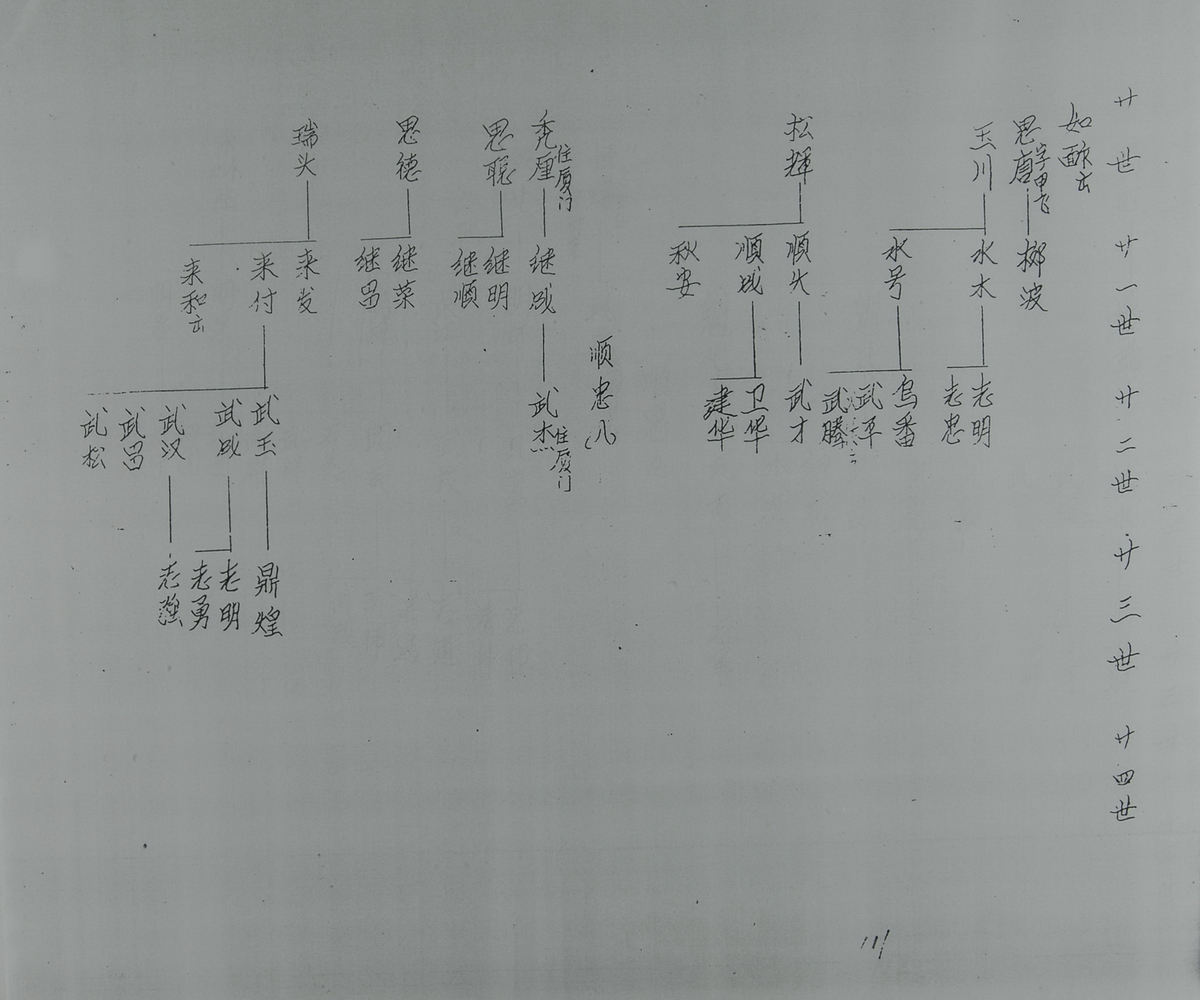 廿世
廿一世
廿二世
廿三世
廿四世
如酕ム
思唐字甲飞
郴波
玉川
水木
志明
志忠
水号
乌番
武平
武腾
松辉
顺大
武才
顺成
卫华
建华
秋安
顺忠八
秃厘住厦门
继成
武杰住厦门
思聪
继明
继顺
思德
继荣
继昌
瑞头
来发
来付
武玉
鼎煌
武成
志明
志勇
武汉
志强
武昌
武松
来和ム
111